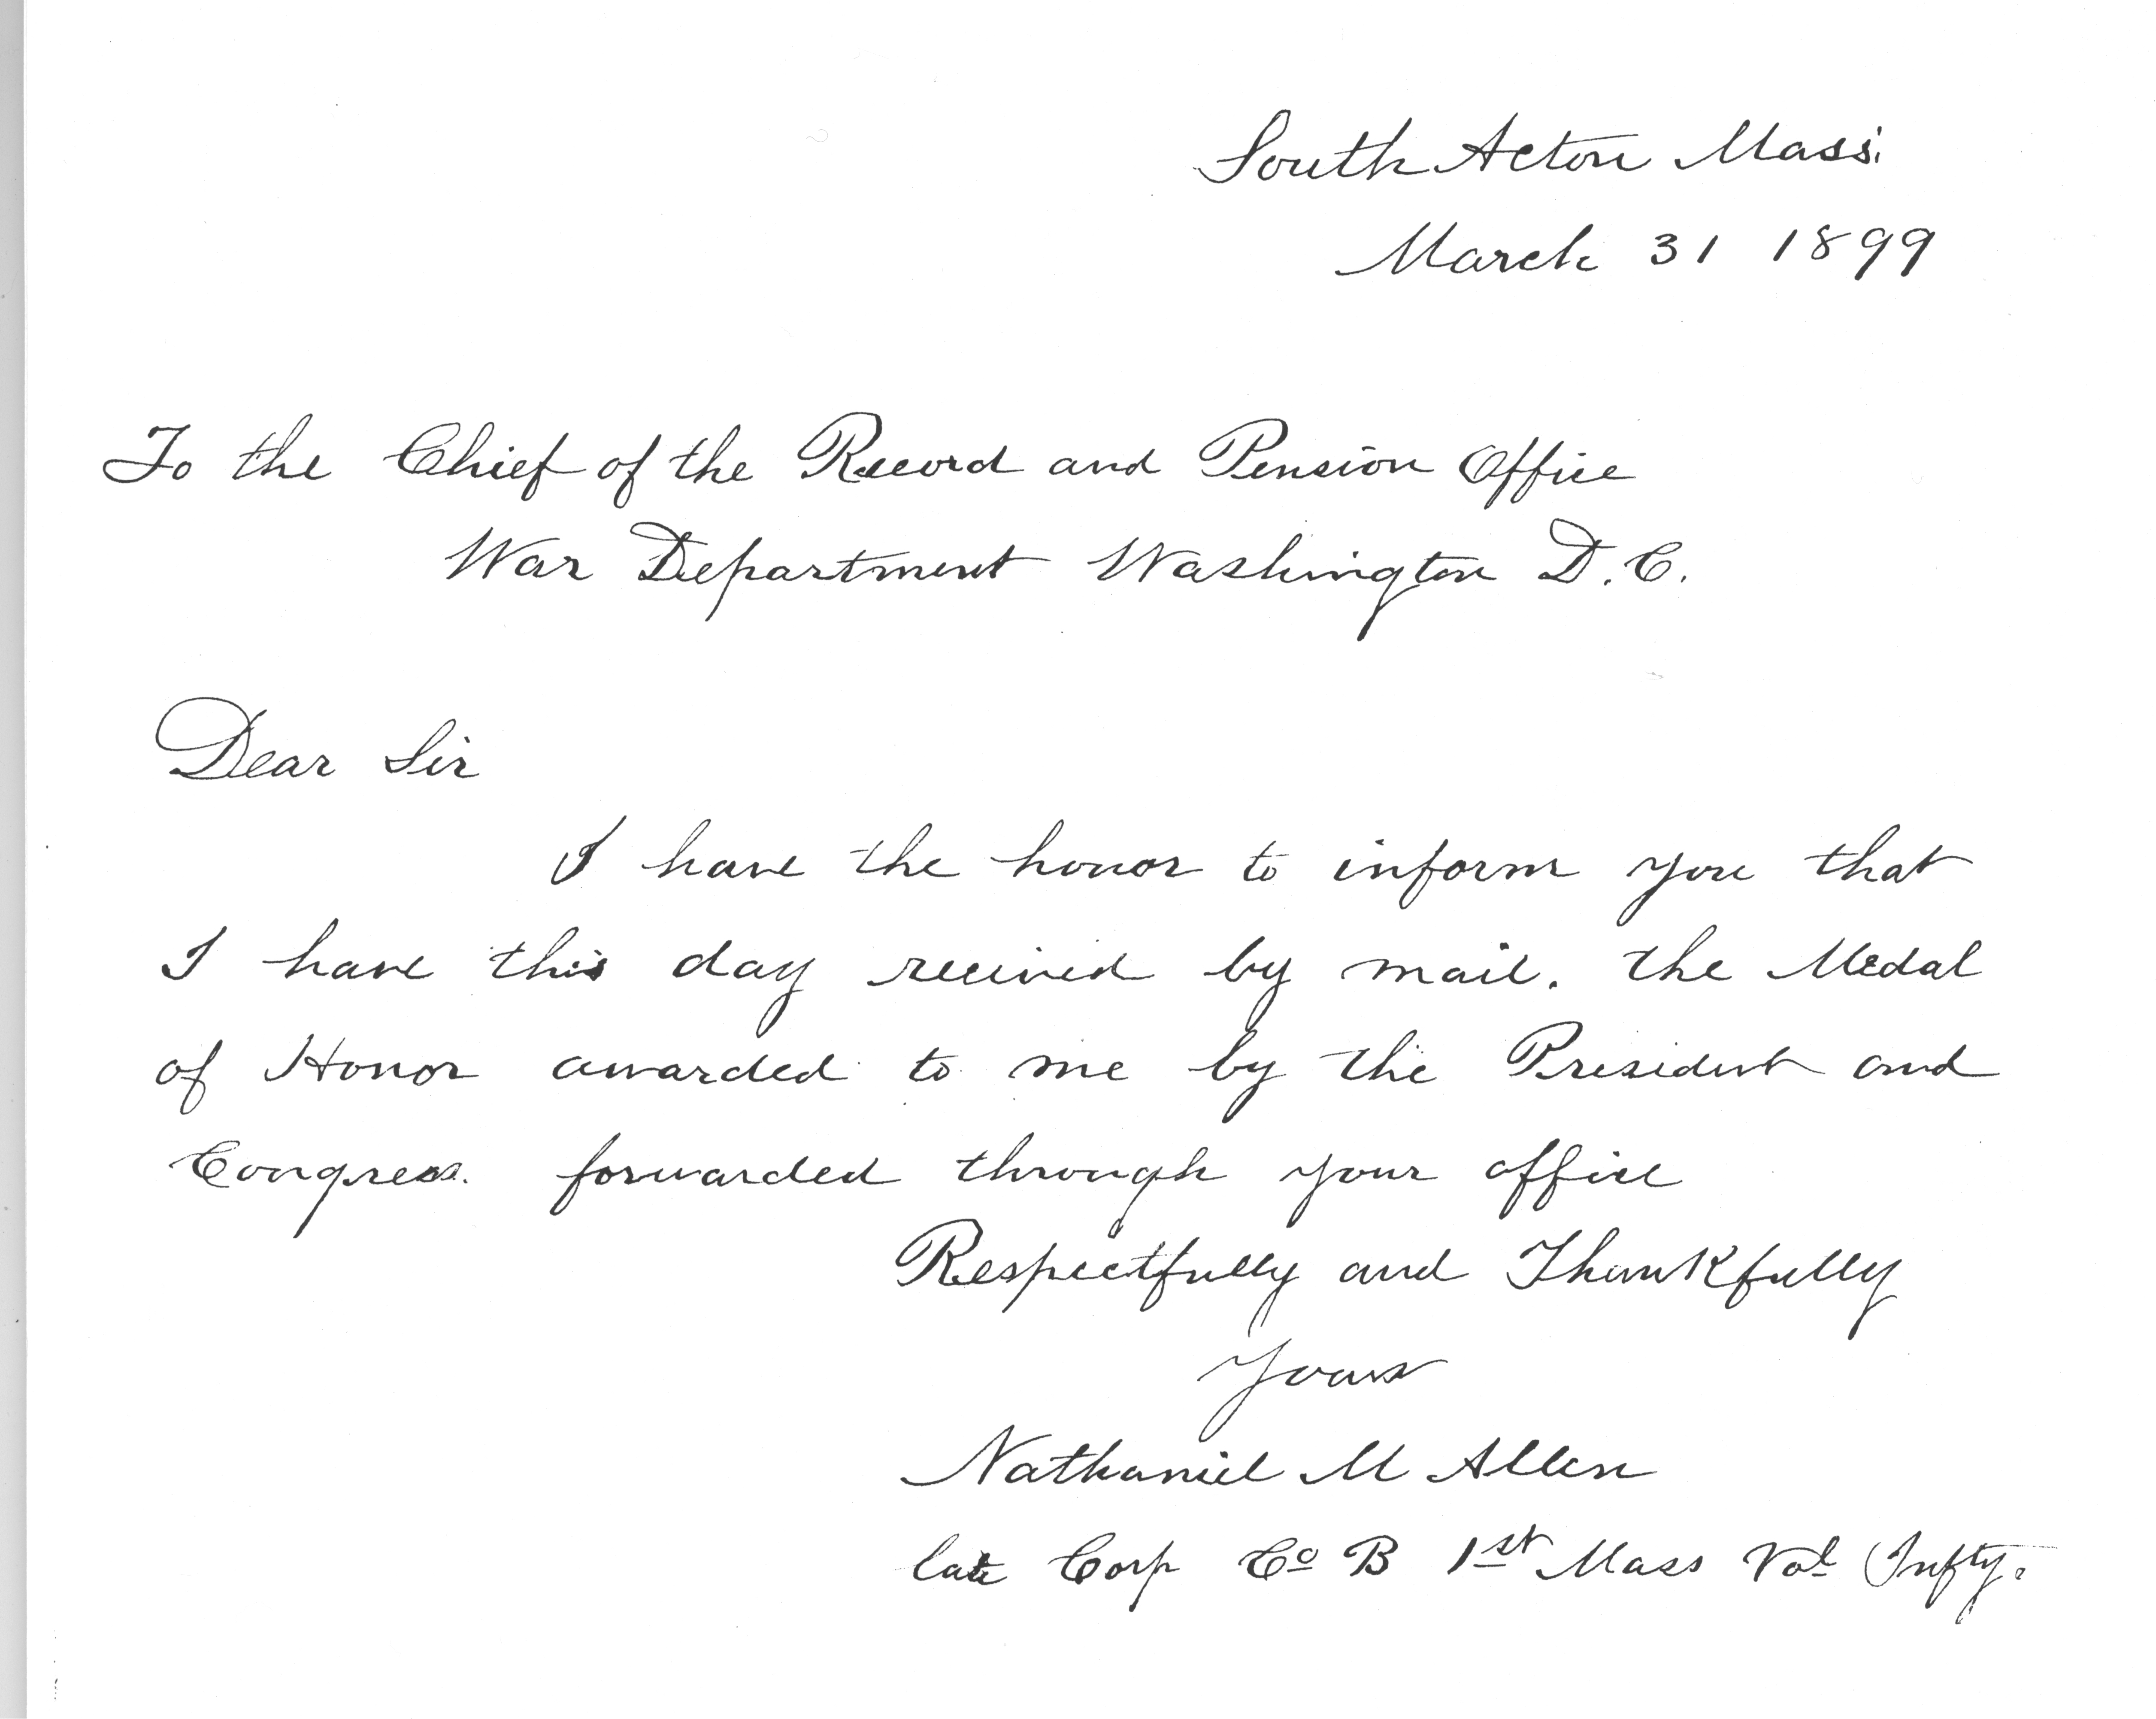 South Acton Mass.
March 31 1899
To the Chief of the Record and Pension Office
War Department Washington D.C.
Dear Sir
I have the honor to inform you that
I have this day received by mail. the Medal
of Honor awarded to me by the President and
Congress. forwarded through your office
Respectfully and Thankfully
Yours
Nathaniel M Allen
late Corp Co B 1st Mass Vol Infty.